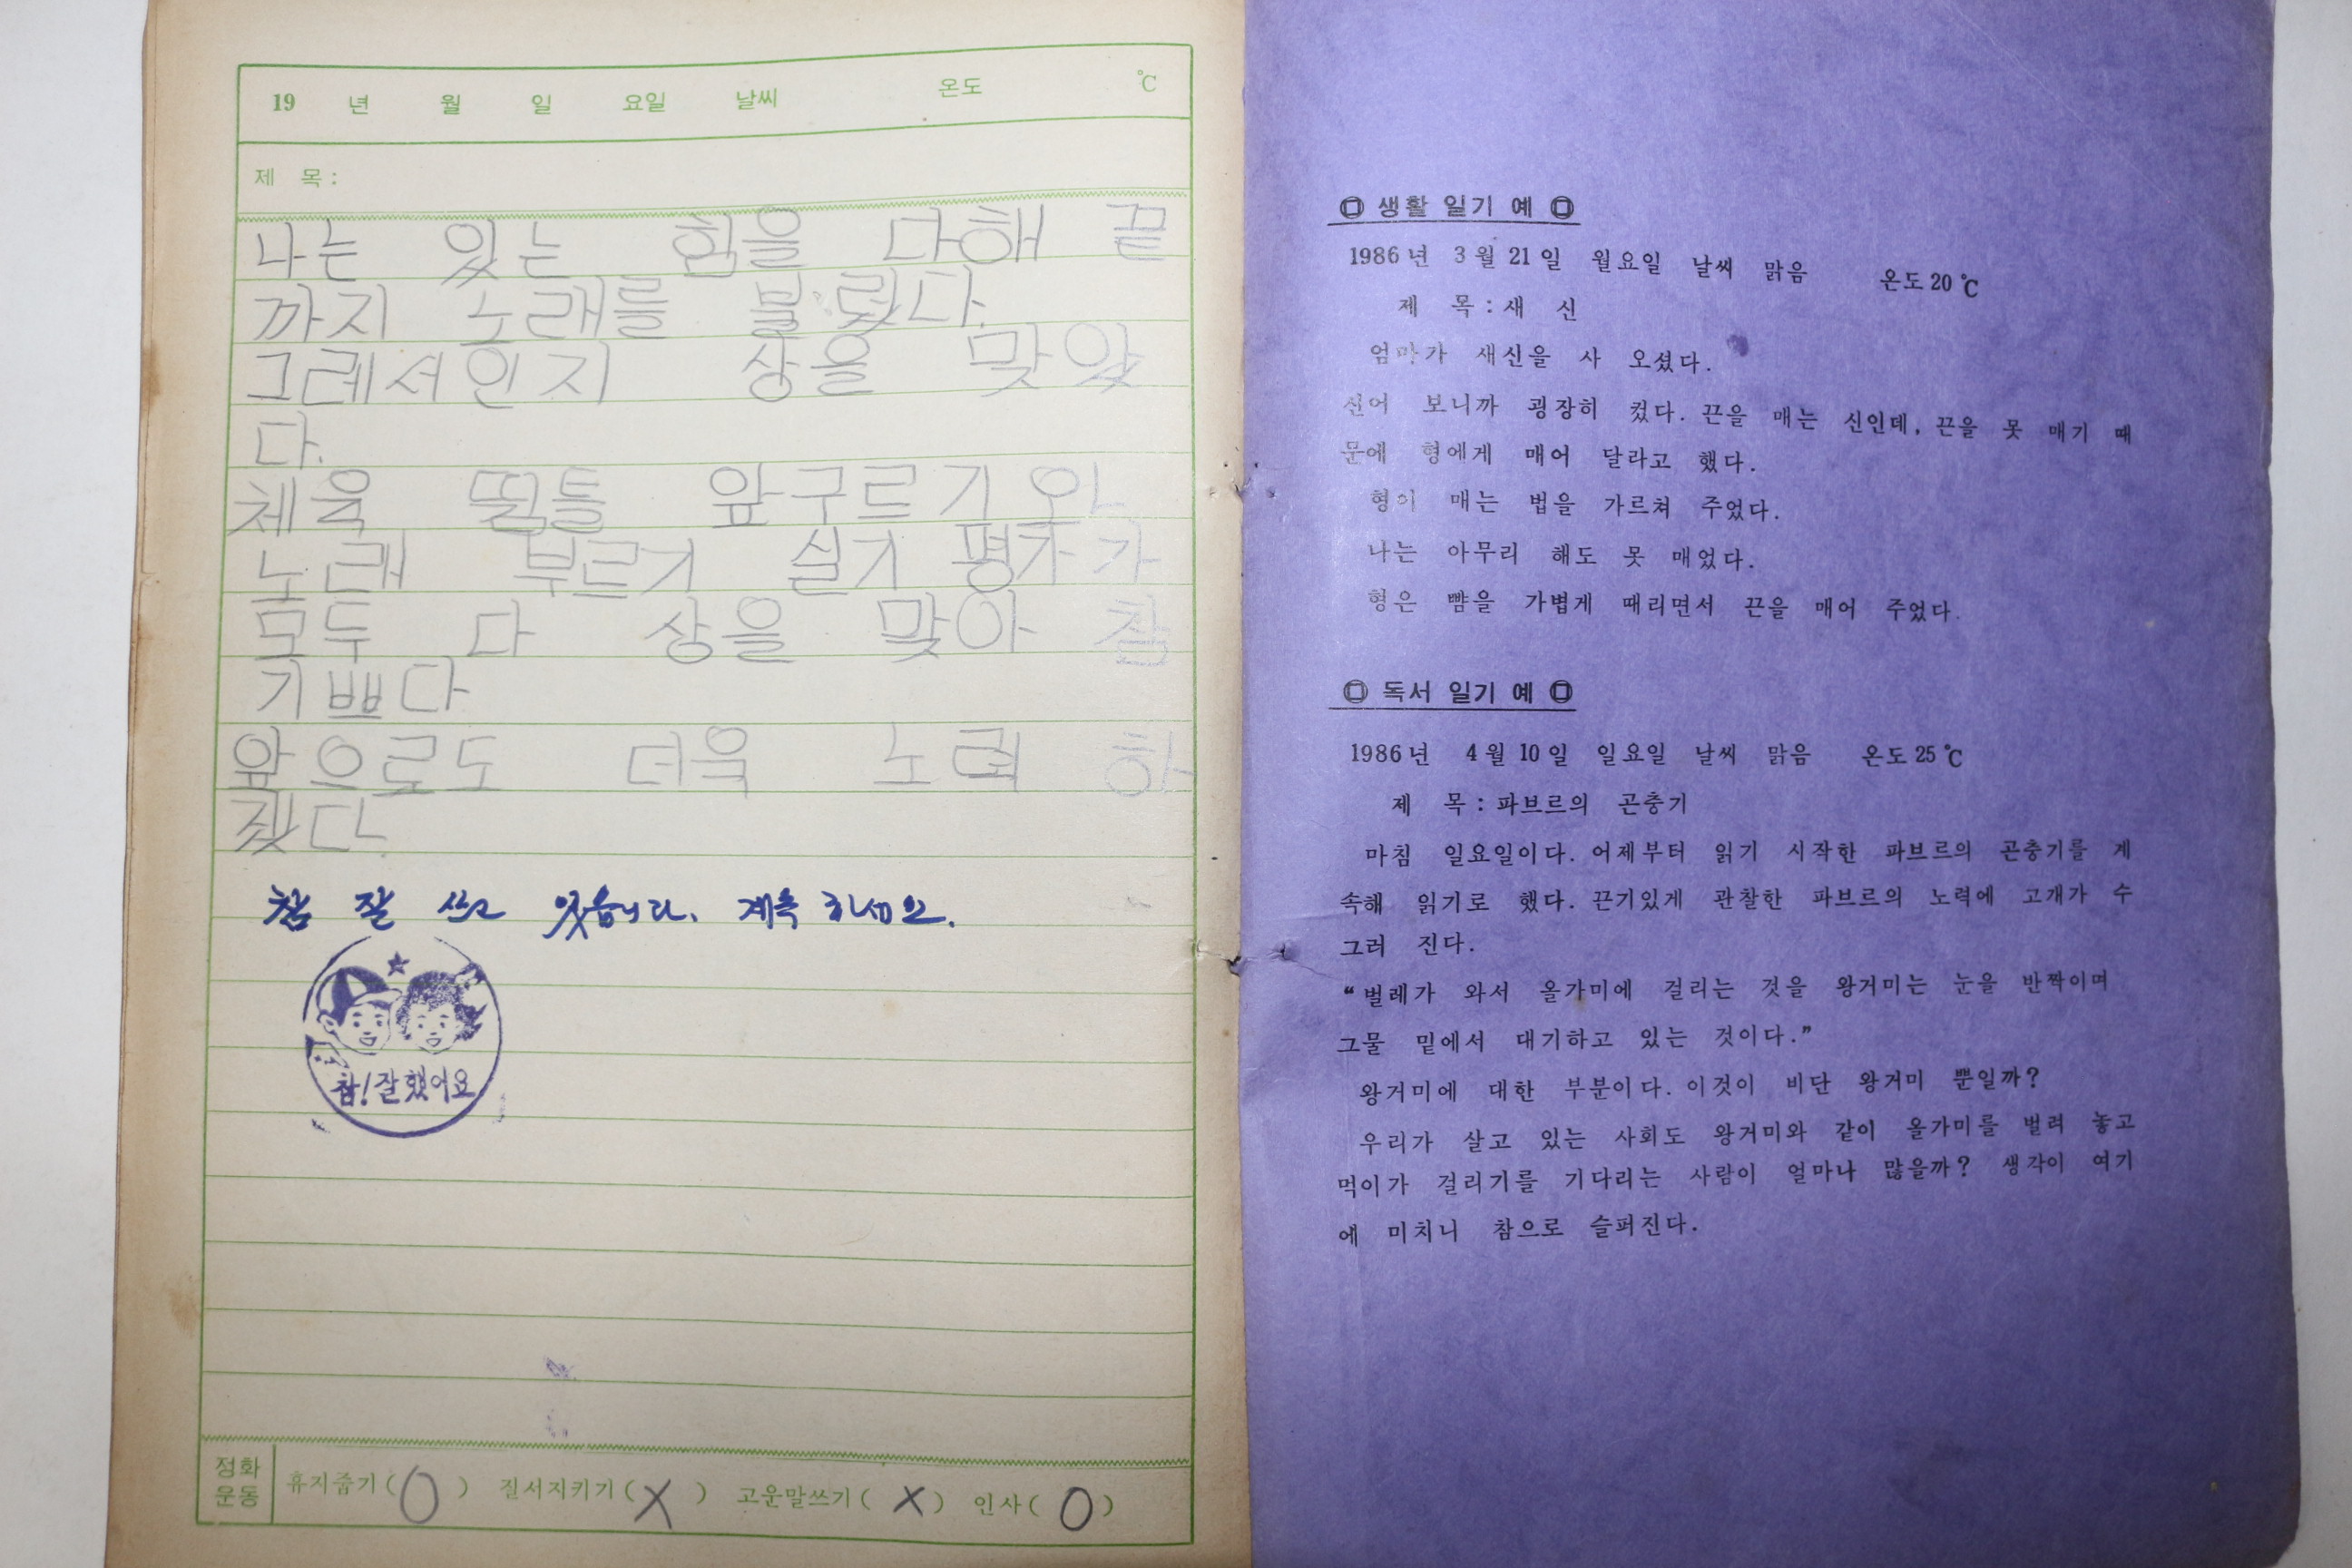 19 년 월 일 요일 날씨 온도 ℃
제 목 :
나는 있는 힘을 다해 끝
까지 노래를 불렀다.
그레서인지 상을 맞았
다.
체육 뜀틀 앞구르기와
노래 부르기 실기 평가가
모두 다 상을 맞아 참
기쁘다
앞으로도 더욱 노력 하
겠다.
참 잘 쓰고 있습니다. 계속 하세요.
참! 잘했어요
정화
운동
휴지줍기 ( O ) 질서지키기 ( X ) 고운말쓰기 ( X ) 인사 ( O )
◎ 생활 일기 예 ◎
1986년 3월 21일 월요일 날씨 맑음 온도 20℃
제 목 : 새 신
엄마가 새신을 사 오셨다.
신어 보니까 굉장히 컸다. 끈을 매는 신인데, 끈을 못 매기 때
문에 형에게 매어 달라고 했다.
형이 매는 법을 가르쳐 주었다.
나는 아무리 해도 못 매었다.
형은 뺨을 가볍게 때리면서 끈을 매어 주었다.
◎ 독서 일기 예 ◎
1986년 4월 10일 일요일 날씨 맑음 온도 25℃
제 목 : 파브르의 곤충기
마침 일요일이다. 어제부터 읽기 시작한 파브르의 곤충기를 계
속해 읽기로 했다. 끈기있게 관찰한 파브르의 노력에 고개가 수
그러 진다.
“벌레가 와서 올가미에 걸리는 것을 왕거미는 눈을 반짝이며
그물 밑에서 대기하고 있는 것이다.”
왕거미에 대한 부분이다. 이것이 비단 왕거미 뿐일까?
우리가 살고 있는 사회도 왕거미와 같이 올가미를 벌려 놓고
먹이가 걸리기를 기다리는 사람이 얼마나 많을까? 생각이 여기
에 미치니 참으로 슬퍼진다.